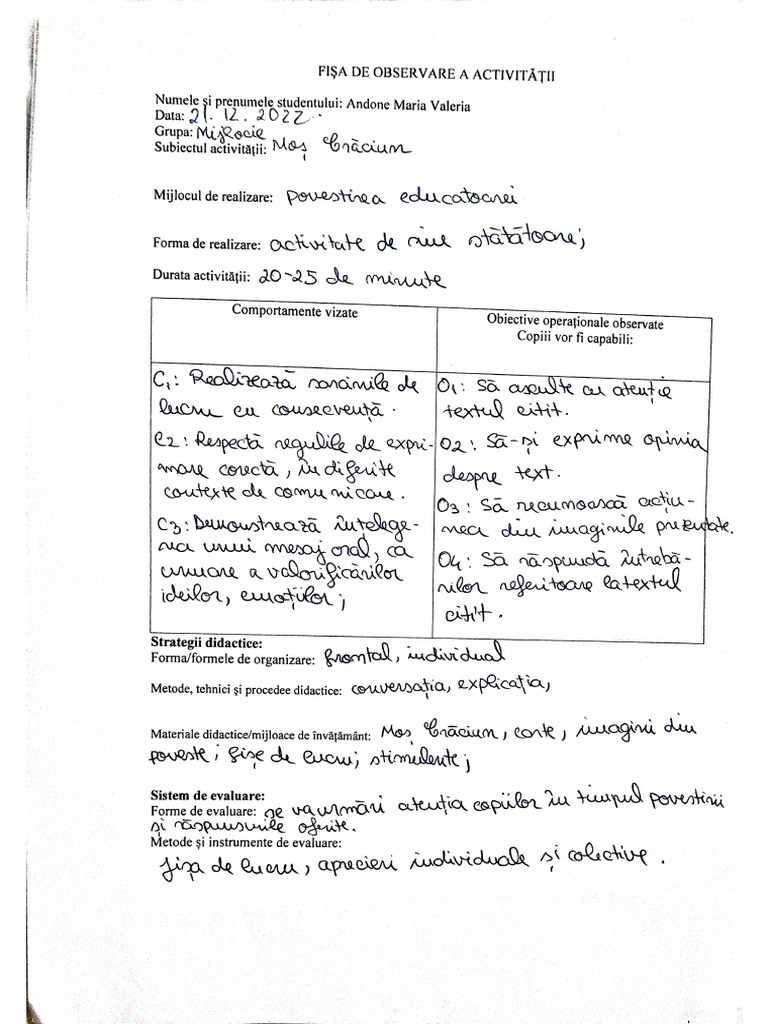 FIȘA DE OBSERVARE A ACTIVITĂȚII
Numele și prenumele studentului: Andone Maria Valeria
Data: 21.12.2022
Grupa: Mijlocie
Subiectul activității: Moș Crăciun
Mijlocul de realizare: povestirea educatoarei
Forma de realizare: activitate de sine stătătoare;
Durata activității: 20-25 de minute
Comportamente vizate
Obiective operaționale observate
Copiii vor fi capabili:
C1: Realizează sarcinile de
lucru cu consecvență.
C2: Respectă regulile de expri-
mare corectă, în diferite
contexte de comunicare.
C3: Demonstrează înțelege-
rea unui mesaj oral, ca
urmare a valorificărilor
ideilor, emoțiilor;
O1: Să asculte cu atenție
textul citit.
O2: Să-și exprime opinia
despre text.
O3: Să recunoască acțiu-
nea din imaginile prezentate.
O4: Să răspundă întrebă-
rilor referitoare la textul
citit.
Strategii didactice:
Forma/formele de organizare: frontal, individual
Metode, tehnici și procedee didactice: conversația, explicația,
Materiale didactice/mijloace de învățământ: Moș Crăciun, carte, imagini din
poveste; fișe de lucru; stimulente;
Sistem de evaluare:
Forme de evaluare: se va urmări atenția copiilor în timpul povestirii
și răspunsurile oferite.
Metode și instrumente de evaluare:
fișa de lucru, aprecieri individuale și colective.